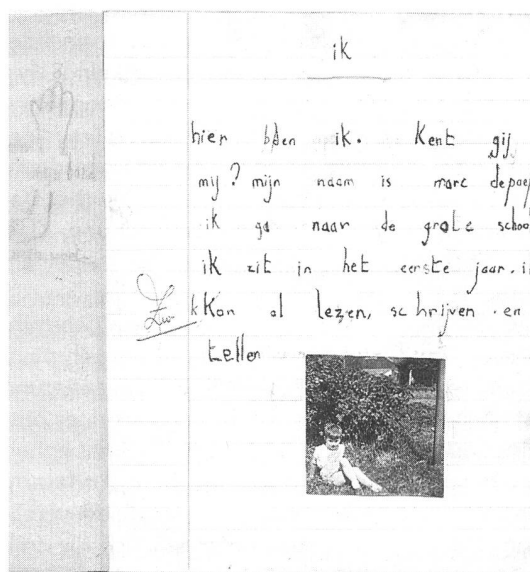 ik
hier bben ik. Kent gij
mij? mijn naam is marc depaep
ik ga naar de grote school
ik zit in het eerste jaar. i
kKan al lezen, schrijven en
tellen